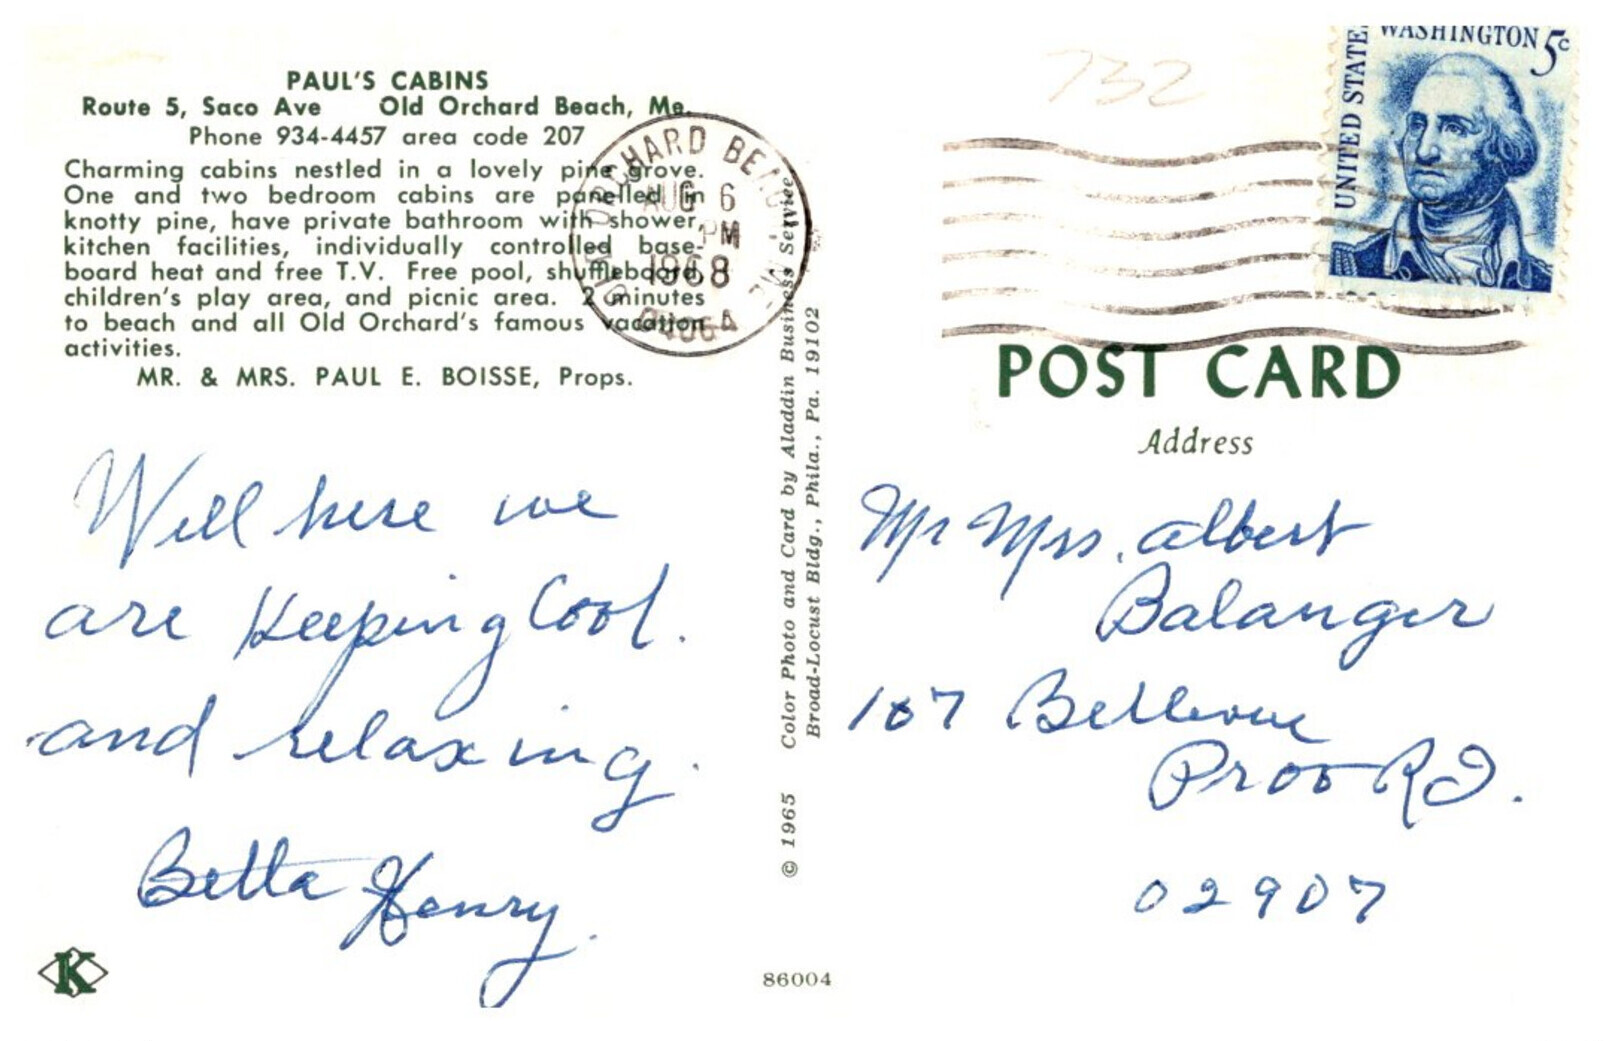 PAUL'S CABINS
Route 5, Saco Ave Old Orchard Beach, Me.
Phone 934-4457 area code 207
Charming cabins nestled in a lovely pine grove.
One and two bedroom cabins are panelled in
knotty pine, have private bathroom with shower,
kitchen facilities, individually controlled base-
board heat and free T.V. Free pool, shuffleboard,
children's play area, and picnic area. 2 minutes
to beach and all Old Orchard's famous vacation
activities.
MR. & MRS. PAUL E. BOISSE, Props.
OLD ORCHARD BEACH, ME
AUG 6
PM
1968
04064
Well here we
are Keeping Cool.
and relaxing.
Betta Henry.
K
© 1965 Color Photo and Card by Aladdin Business Service
Broad-Locust Bldg., Phila., Pa. 19102
86004
732
UNITED STATES
WASHINGTON 5c
POST CARD
Address
Mr Mrs. Albert
Balanger
167 Bellevue
Prov R I.
02907